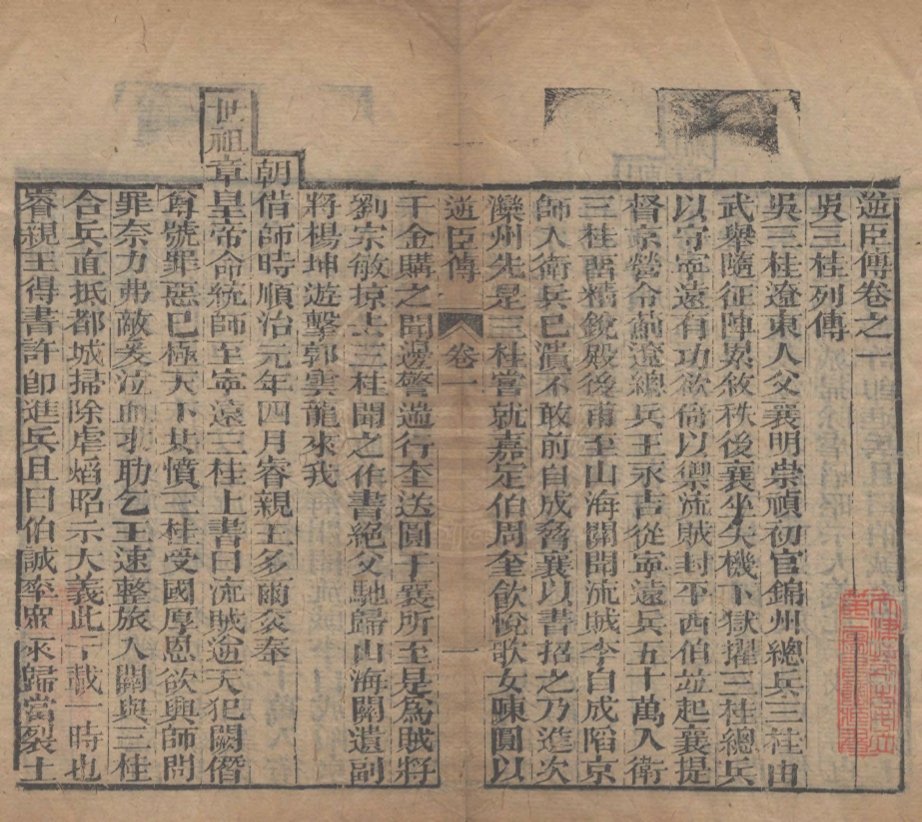 逆臣傳卷之一
吳三桂列傳
吳三桂遼東人父襄明崇禎初官錦州總兵三桂由
武舉隨征陣累敘秩後襄坐失機下獄擢三桂總兵
以守寧遠有功欲倚以禦流賊封平西伯並起襄提
督京營令薊遼總兵王永吉從寧遠兵五十萬入衛
三桂留精銳殿後甫至山海關聞流賊李自成陷京
師入衛兵已潰不敢前自成脅襄以書招之乃進次
灤州先是三桂嘗就嘉定伯周奎飲悅歌女陳圓以
逆臣傳 卷一 一
千金購之聞邊警遄行奎送圓于襄所至是為賊將
劉宗敏掠去三桂聞之作書絕父馳歸山海關遣副
將楊坤遊擊郭雲龍來我
朝借師時順治元年四月睿親王多爾袞奉
世祖章皇帝命統師至寧遠三桂上書曰流賊逆天犯闕僭
尊號罪惡已極天下共憤三桂受國厚恩欲興師問
罪奈力弗敵爰泣血求助乞王速整旅入關與三桂
合兵直抵都城掃除虐熖昭示大義此千載一時也
睿親王得書許即進兵且曰伯誠率眾來歸當裂土